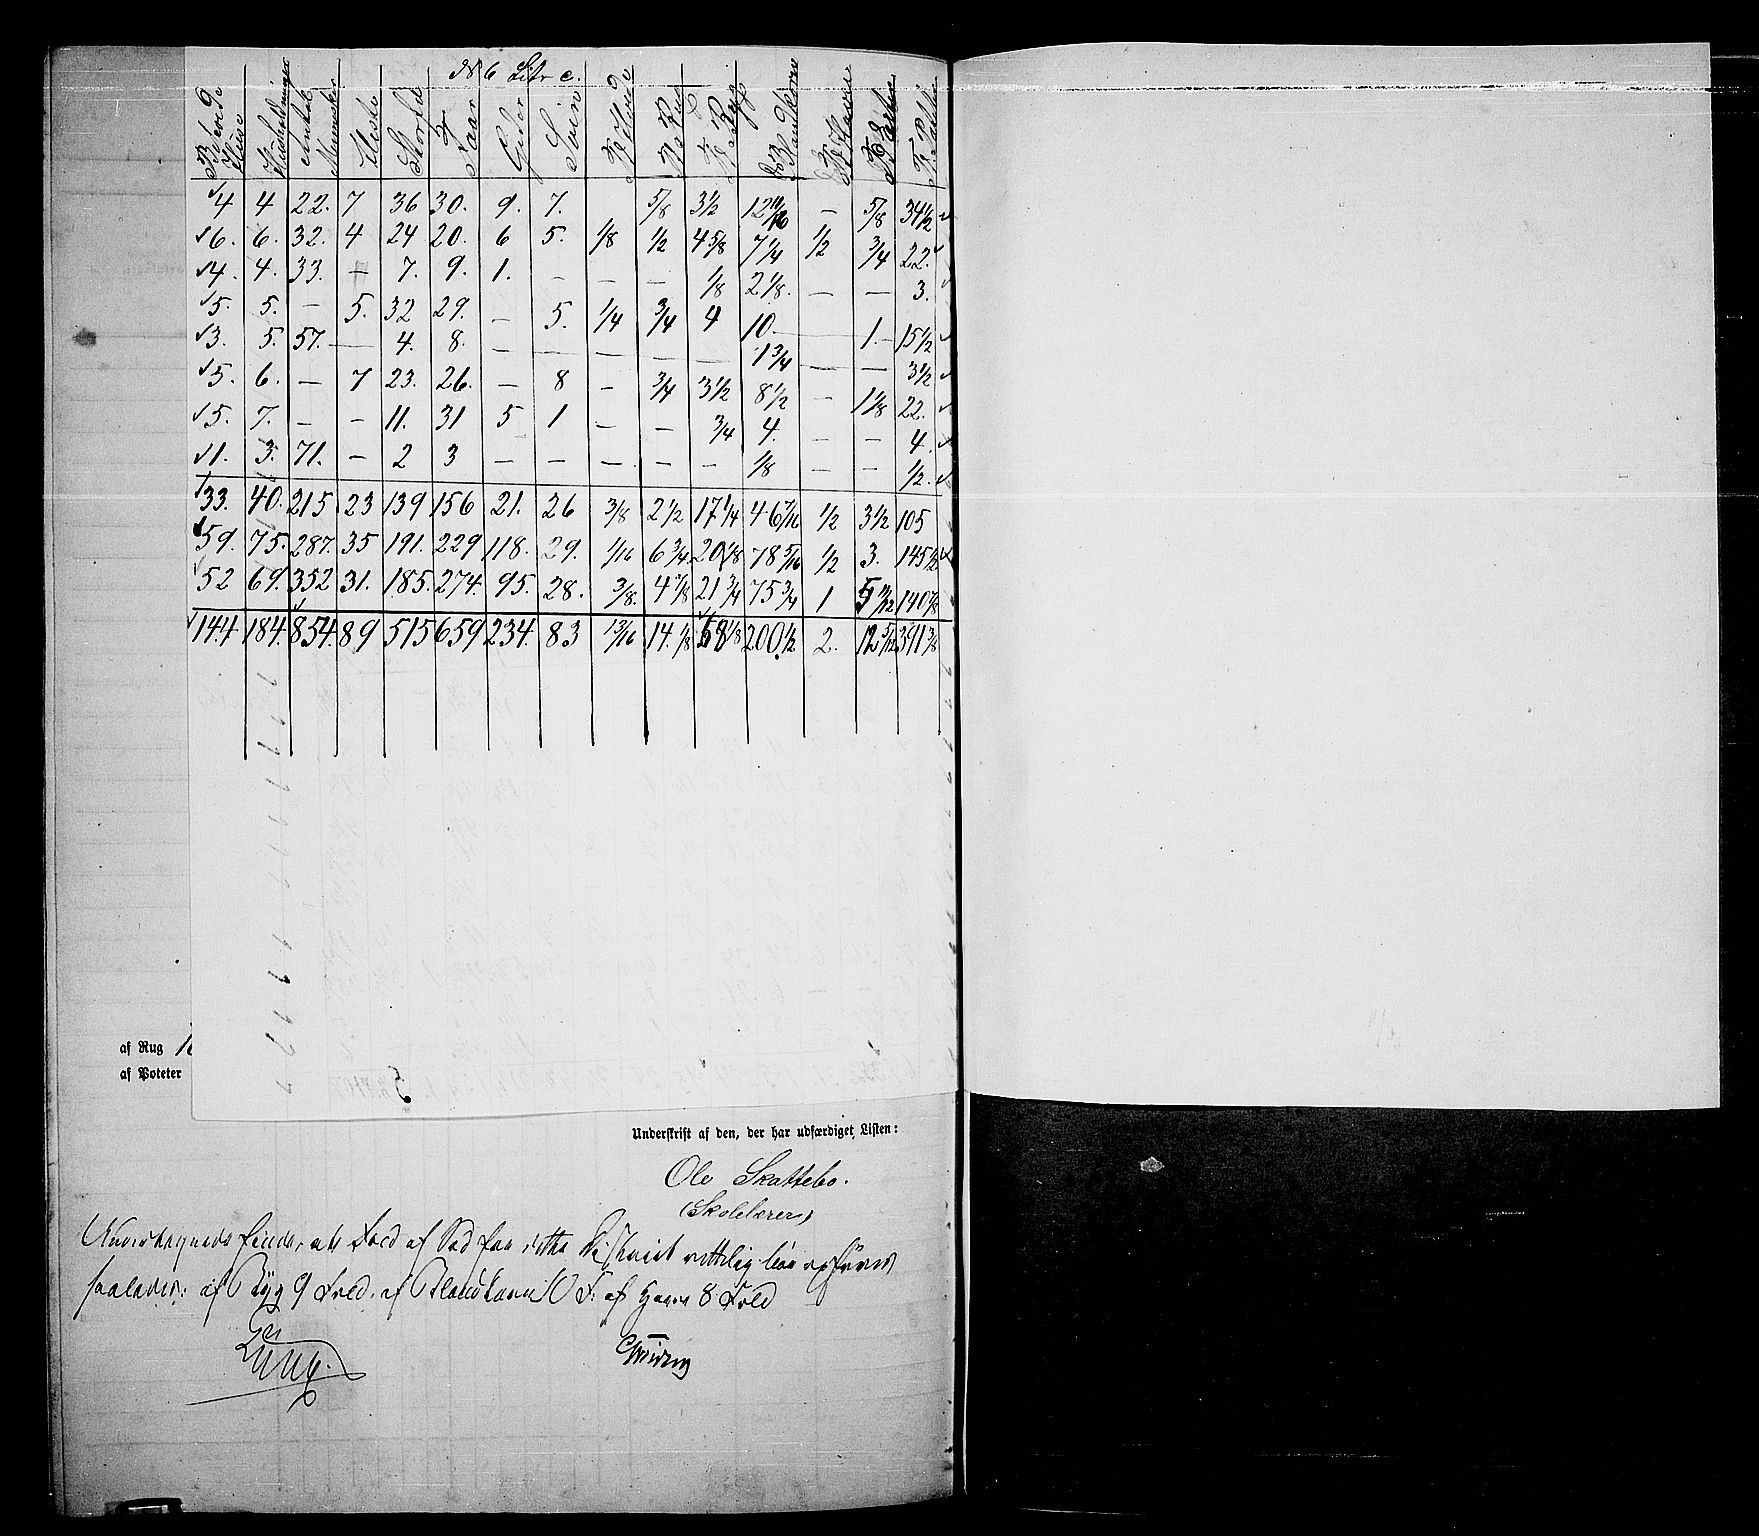 No 6 Litr c.
Beboede Huse | Husholdninger | Antal Mennesker | Heste | Storfæ | Faar | Geder | Svin | Hvede | Rug | Byg | Blandkorn | Havre | Erter | Poteter
4 4 22. 7 36 30. 9. 7. 5/8 3 1/2 12 — 5/8 34 1/2
6. 6. 32. 4 24 20. 6 5. 1/8 1/2 4 5/8 7 1/4 1/2 3/4 22.
4. 4. 33. — 7. 9. 1. — — — 1/8 2 1/8. — — 3.
5. 5. — 5. 32 29. — 5. 1/4 3/4 4 10. — 1. 15 1/2
3. 5. 57. — 4. 8. — — — — — 1 3/4 — — 3 1/2
5. 6. — 7 23. 26. — 8 — 3/4 3 1/2 8 1/2 — 1 1/8 22.
5. 7. — — 11. 31 5 1 — — 3/4 4. — — 4.
1. 3. 71. — 2 3 — — — — — 1/8 — — 1/2.
33. 40. 215 23 139 156 21. 26 3/8 2 1/2 17 1/4 46 7/16 1/2 3 1/2 105
59. 75. 287. 35 191. 229 118. 29. 1/16 6 3/4 20 1/8 78 5/16 1/2 3. 145 1/2
52 69. 352 31. 185. 274. 95. 28. 3/8. 4 7/8 21 3/4 75 3/4 1 5 11/12 140 7/8
144 184. 854. 89 515 659 234. 83 13/16 14. 1/8 200 1/2 2. 12 5/12 391 3/8
af Rug
af Poteter
Underskrift af den, der har udfærdiget Listen:
Ole Skattebo.
(Skolelærer)
Undertegnede finder, at Fold af Sæd for dette Distrikt rettelig bør opføres
saaledes: af Byg 9 Fold, af Blandkorn 10 F. af Havre 8 Fold